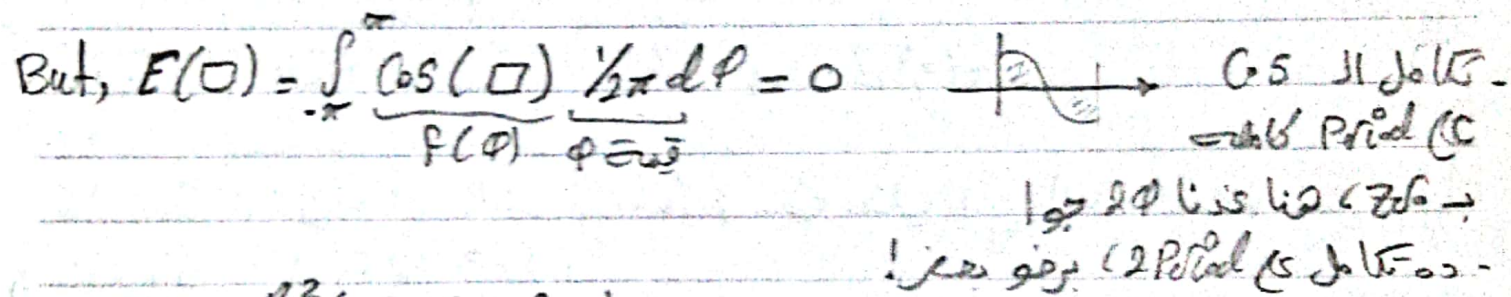 But, E(□) = ∫_{-π}^{π} Cos(□) 1/2π dφ = 0
f(φ) φ قيمة
- تكامل الـ Cos
على Period كاملة =
بـ Zero، هنا عندنا 2φ جوا
- ده تكامل على 2 Period، برضو بصفر!